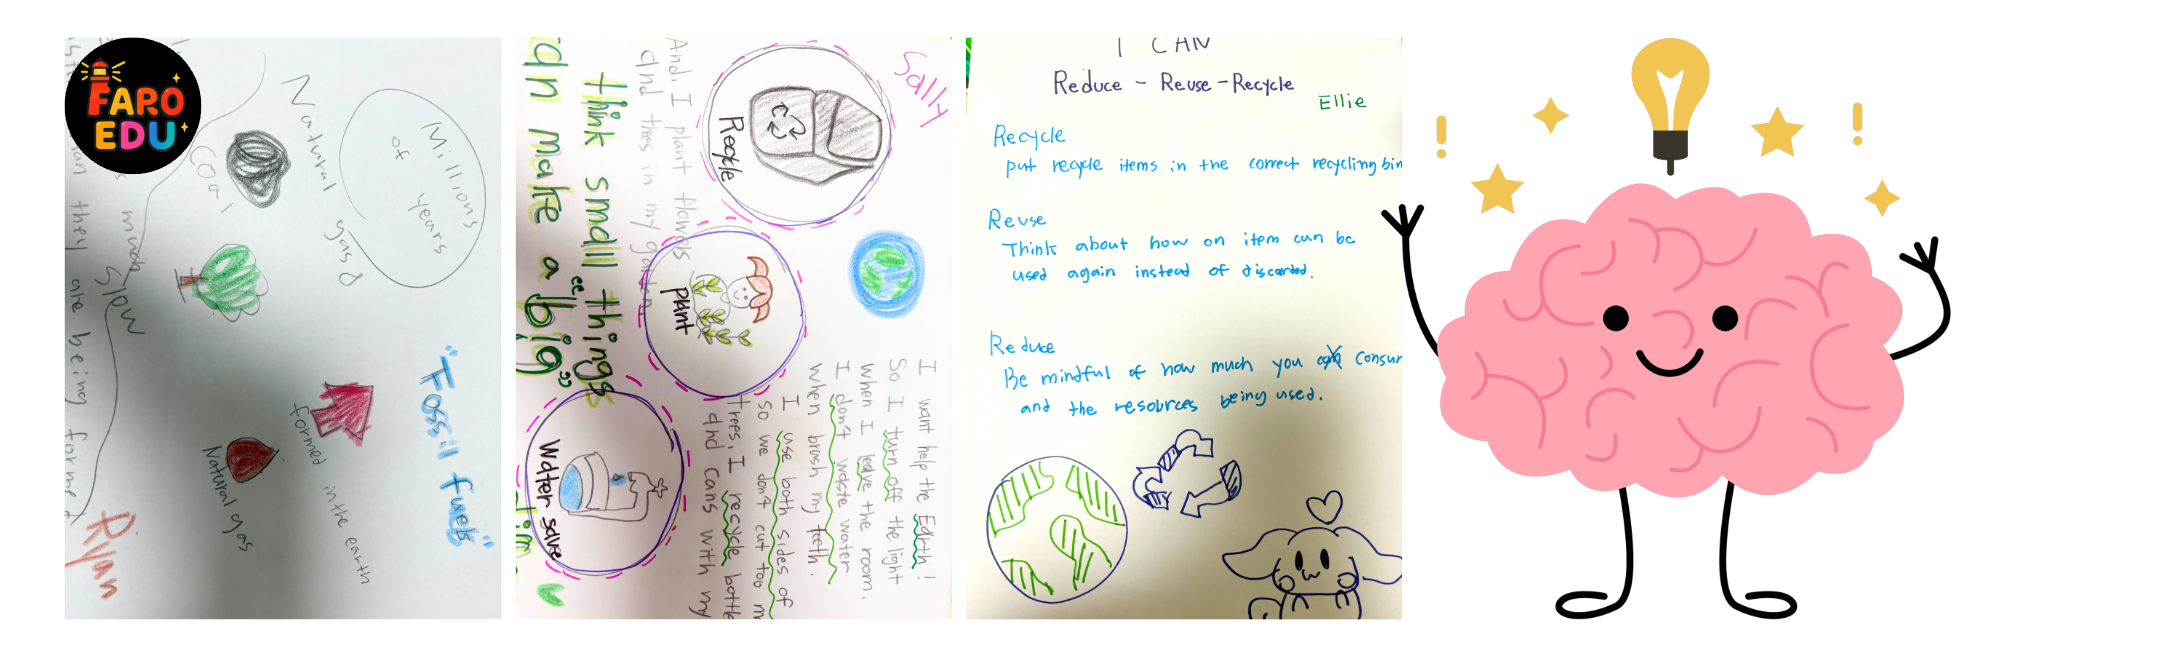 FARO
EDU
Millions
of
years
Natural gas?
Coal
much
slow
they are being formed
"Fossil fuels"
formed in the earth
Natural gas
Ryan
Sally
Recycle
plant
Water save
And, I plant flowers
and trees in my garden
think smalll things
an make a "big"
I want help the Earth!
So I turn off the light
when I leave the room.
I don't waste water
when brush my teeth.
I use both sides of
so we don't cut too m
trees, I recycle bottle
and cans with my
I CAN
Reduce - Reuse - Recycle
Ellie
Recycle
put recycle items in the correct recycling bin
Reuse
Think about how an item can be
used again instead of discarded.
Reduce
Be mindful of how much you consum
and the resources being used.